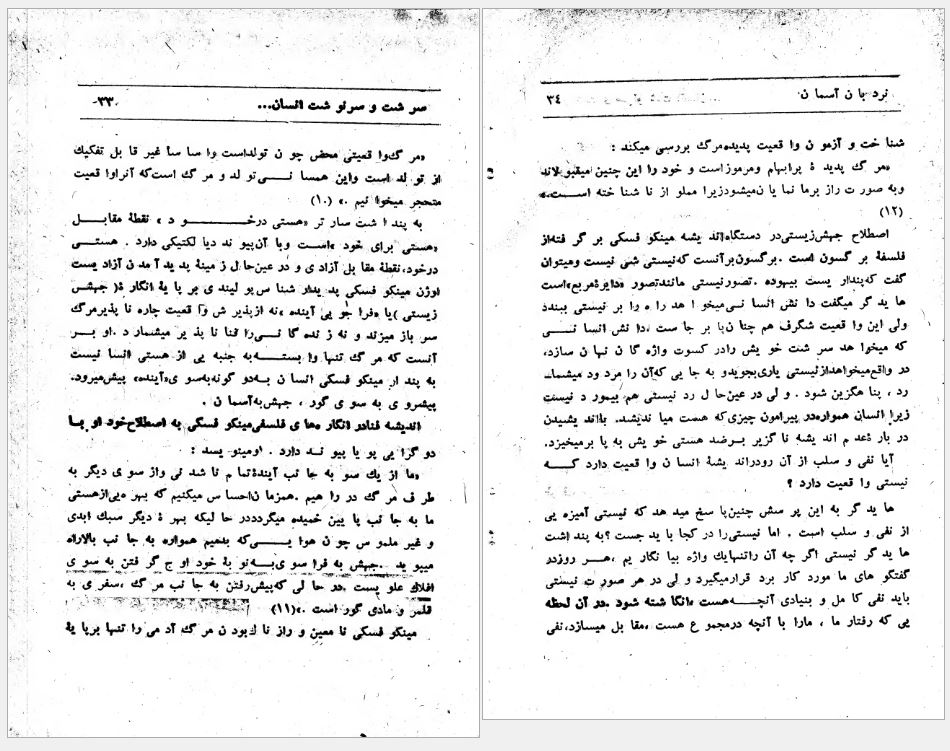 سر شت و سر نو شت انسان... -۳۳-
«مر گ‌وا قعیتی محض چو ن تولداست وا سا سأ غیر قا بل تفکیك
از تو لد است واین همسا نـــی‌تو لد و مر گ است‌که آنراوا قعیت
متحجر میخوا نیم .» (۱۰)
به پندا شت سار تر «هستی درخـــــــو د » نقطۀ مقابــــل
«هستی برای خود »است وبا آن‌پیو ند دیا لکتیکی دارد . هستــی
درخود،نقطۀ مقا بل آزاد ی و در عین‌حال ز مینۀ پدید آ مد ن آزاد یست
اوژن مینکو فسکی پد یدار شنا س‌پو لیند ی بر پا یۀ انگار ۀ( جهشی
زیستی )یا «فرا جو یی آینده »نه ازپذیر ش وا قعیت چاره نا پذیرمرگ
سر باز میزند و نه ز نده گا نــی‌را فنا نا پذ یر میشمار د .او بــر
آنست که مر گ تنها وا بستـــه‌به جنبه یی از هستی انسا نیست
به پندا ر مینکو فسکی انسا ن به‌دو گونه‌به‌سو ی«آینده» پیش‌میرود.
پیشرو ی به سو ی گور ، جهش‌به‌آسما ن .
اندیشه فنادر انگار ه‌ها ی فلسفی‌مینکو فسکی به اصطلاح‌خود او بــا
دو گرا یی پو یا پیو نــد دارد . اومینو یسد :
«ما از یك سو به جا نب آیندۀ‌تما م نا شد نی واز سو ی دیگر به
طر ف مر گ در را هیم .همزما ن‌احسا س میکنیم که بهر ه‌یی‌ازهستی
ما به جا نب پا یین خمیده میگردددر حا لیکه بهر ۀ دیگر سبك ابدی
و غیر ملمو س چو ن هوا یـــی‌که بدمیم همواره به جا نب بالاراه
میپو ید .جهش به فرا سو ی‌بــه‌تو بۀ خود او ج گر فتن به سو ی
افلاك علو یست .در حا لی که‌پیش‌رفتن به جا نب مر گ ،سفر ی به
قلمر و مادی گور است .»(۱۱)
مینکو فسکی نا معین و راز نا ك‌بود ن مر گ آد می را تنها بر‌پا یۀ
نرد با ن آسما ن ۳٤
شنا خت و آزمو ن وا قعیت پدیده‌مرگ بررسی میکند :
«مر گ پدید ۀ پرابهام ومرموزاست و خود را این چنین میقبولاند
وبه صور ت راز برما نما یا ن‌میشودزیرا مملو از نا شنا خته اســـت.»
(۱۲)
اصطلاح جهش‌زیستی‌در دستگاه‌اند یشه مینکو فسکی بر گر فته‌از
فلسفۀ بر گسون است .برگسون‌برآنست که‌نیستی شی نیست ومیتوان
گفت که‌پندار یست بیهوده .تصورنیستی مانندتصور «دایرۀمربع»است
ها ید گر میگفت دا نش انسا نــی‌میخو ا هد را ه را بر نیستی ببندد
ولی این وا قعیت شگرف هم چنا ن‌پا بر جا ست ،دا نش انسا نــــی
که میخوا هد سر شت خو یش رادر کسوت واژه گا ن نها ن سازد،
در واقع‌میخواهدازنیستی یاری‌بجویدو به جا یی که‌آن را مرد ود میشماـ
رد ، پنا هگزین شود . و لی در عین‌حا ل رد نیستی هم بیسو د نیست
زیرا انسان همواره‌در پیرامون چیزی‌که هست میا ندیشد. بااند یشیدن
در بار ۀعد م اند یشه نا گزیر بــرضد هستی خو یش به پا برمیخیزد.
آیا نفی و سلب از آن روددراند یشۀ انسا ن وا قعیت دارد کـــه
نیستی وا قعیت دارد ؟
ها ید گر به این پر سش چنین‌پا سخ مید هد که نیستی آمیزه یی
از نفی و سلب است . اما نیستی‌را در کجا با ید جست ؟به پند اشت
ها ید گر نیستی اگر چه آن راتنهایك واژه بیا نگار یم ،هـــر روزدر
گفتگو های ما مورد کار برد قرارمیگیرد و لی در هر صور ت نیستی
باید نفی کا مل و بنیادی آنچـــه‌هست «انگا شته شود .در آن لحظه
یی که رفتار ما ، مارا با آنچه درمجمو ع هست «مقا بل میسازد،نفی